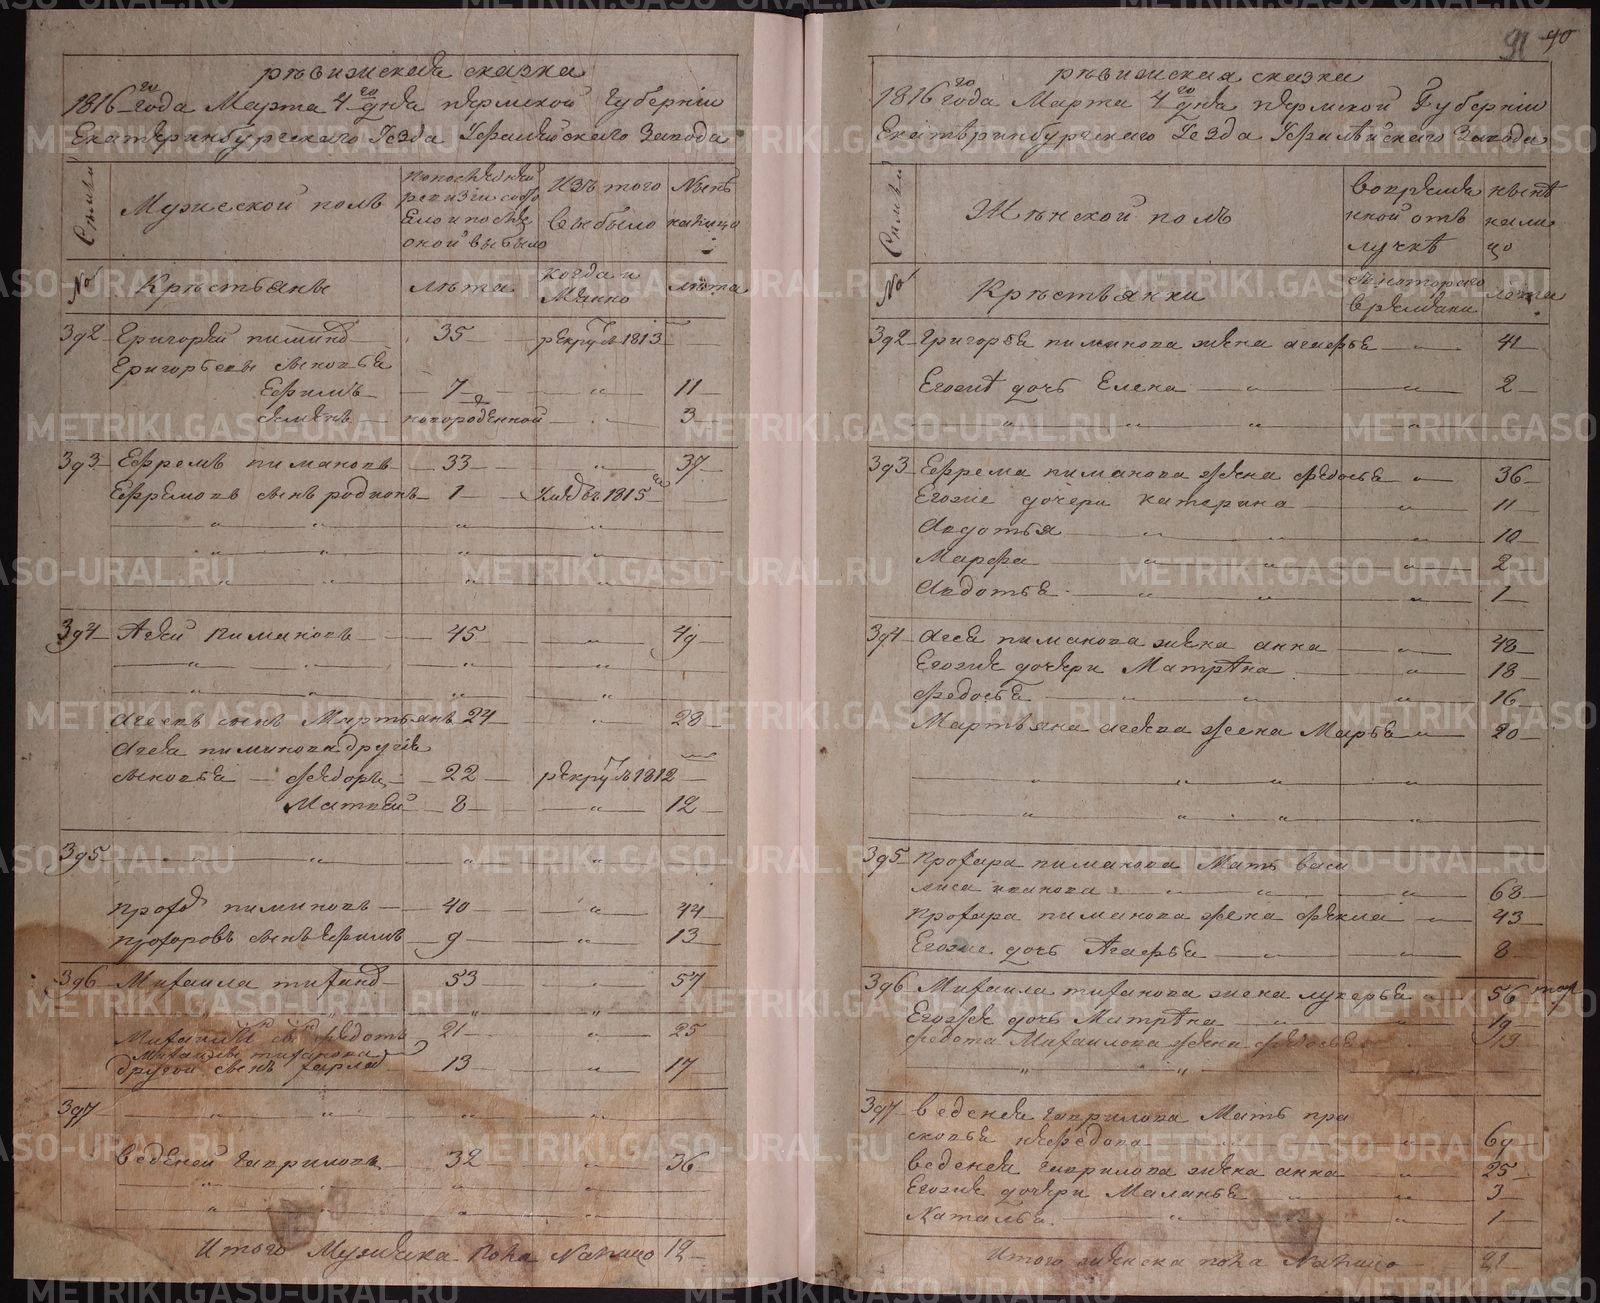 91 90
рѣвизская сказка
1816го года Марта 4го дня пермской Губернiи
Екатеринбургскаго Уезда Уфалейскаго Завода
Семьи
Мужеской полъ
Изъ того
выбыло
Нынѣ
налицо
№
Крѣстьяне
лѣта
когда и
лѣта
392 Григорей пиминов 35 рекрут. 1813
Григорьевы сыновья
Ефимъ 7 " 11
Семенъ новорожденной 3
393 Ефремъ пимановъ 33 " 37
Ефремовъ сынъ родионъ 1 Умре въ 1815
394 Агей Пимановъ 45 " 49
Агеевъ сынъ Мартьянъ 24 " 28
Агея пиминова другiе
сыновья Федоръ 22 рекрут. 1812
Матвей 8 " 12
395
прохор пиминовъ 40 " 44
прохоровъ сынъ Ефимъ 9 " 13
396 Михаила тиханов 53 " 57
Михаилы сынъ Федотъ 21 " 25
Михайлы тиханова
другой сынъ 13 " 17
397
веденей гавриловъ 32 " 36
Итого Мужеска пола Налицо 12
рѣвизская сказка
1816го года Марта 4го дня пермской Губернiи
Екатеринбургскаго Уезда Уфалѣйскаго Завода
Семьи
Жѣнской полъ
вовремѣ
нной отъ
лучкѣ
нынѣ
нали
цо
№
Крѣстьянки
съ котораго
времени
лѣта
392 Григорья пиманова жена агафья " 41
Егожъ дочь Елена " 2
393 Ефрема пиманова жена федосья " 36
Егоже дочери катерина " 11
Авдотья " 10
Марфа " 2
Авдотья " 1
394 Агея пиманова жена анна " 48
Егоже дочери Матрѣна " 18
федосья " 16
Мартьяна агеева жена Марья " 20
395 Прохора пиманова Мать васи
лиса иванова " 68
Прохора пиманова жена фекла " 43
Егоже дочь Агафья " 8
396 Михаила тиханова жена лукерья 56
Егоже дочь Матрѣна " 19
федота Михаилова жена федосья
397 веденея гаврилова Мать пра
сковья нефедова " 69
веденея гаврилова жена анна " 25
Егоже дочери Маланья " 3
Наталья " 1
Итого женска пола Налицо 21
METRIKI.GASO-URAL.RU